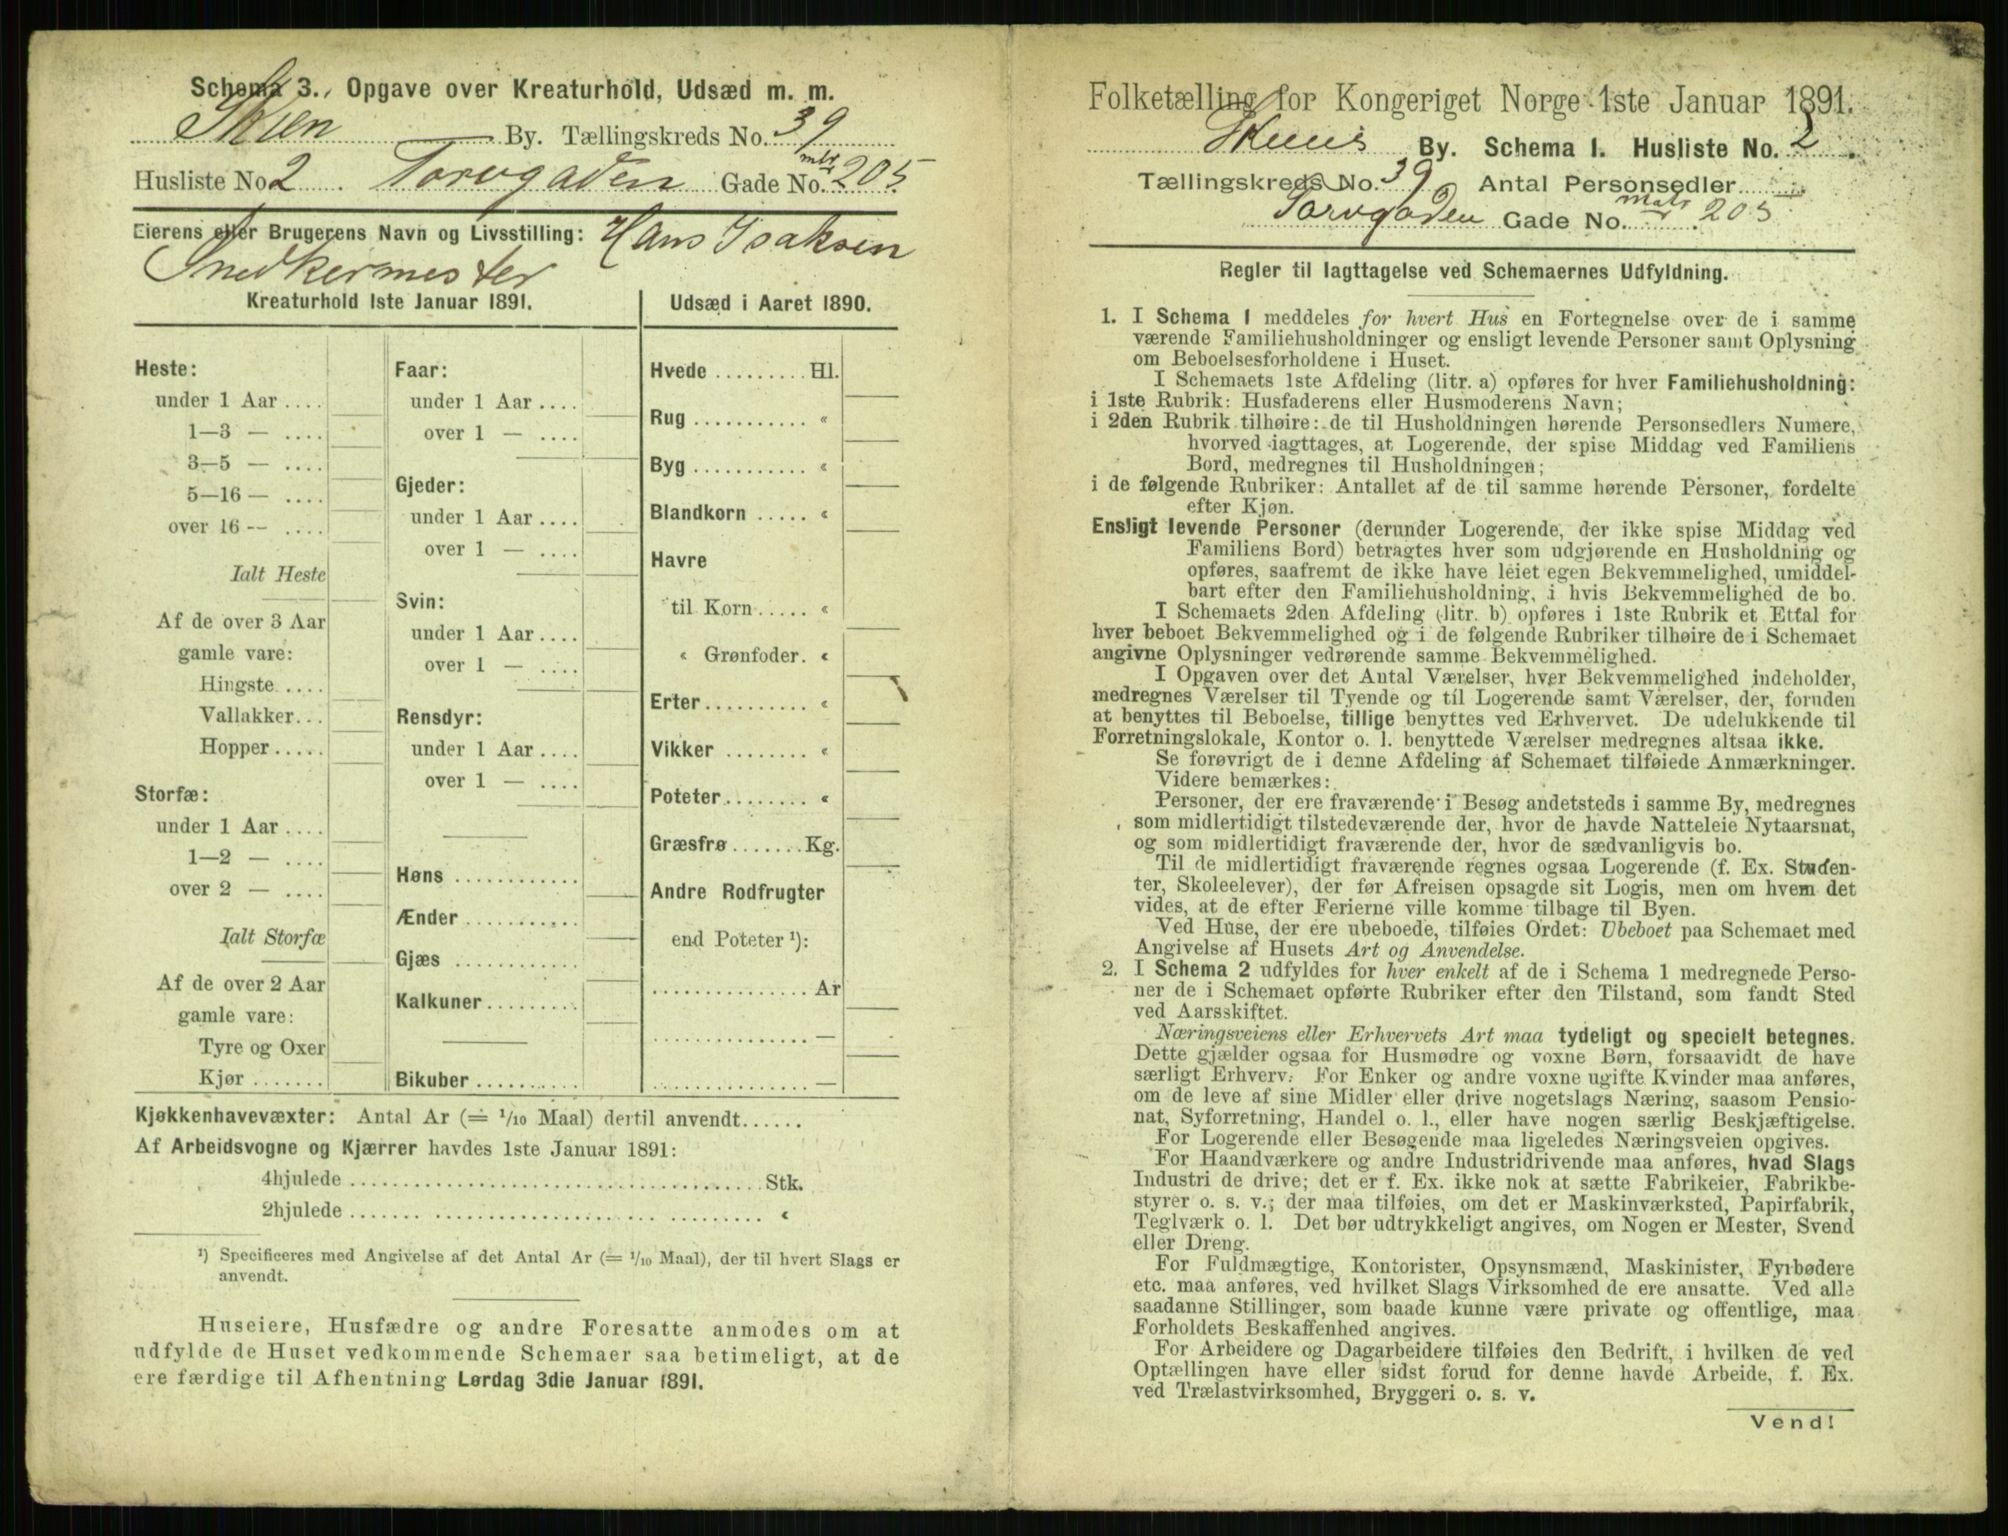 Schema 3. Opgave over Kreaturhold, Udsæd m. m.
Skien By. Tællingskreds No. 39
Husliste No 2 Torvgaden Gade No. mtr 205
Eierens eller Brugerens Navn og Livsstilling: Hans Isaksen
Snedkermester
Kreaturhold 1ste Januar 1891.
Heste:
under 1 Aar ....
1—3 — ....
3—5 — ....
5—16 — ....
over 16 — ....
Ialt Heste
Af de over 3 Aar
gamle vare:
Hingste ....
Vallakker...
Hopper .....
Storfæ:
under 1 Aar ....
1—2 — ....
over 2 — ....
Ialt Storfæ
Af de over 2 Aar
gamle vare:
Tyre og Oxer
Kjør .......
Faar:
under 1 Aar ....
over 1 — ....
Gjeder:
under 1 Aar ....
over 1 — ....
Svin:
under 1 Aar ....
over 1 — ....
Rensdyr:
under 1 Aar ....
over 1 — ....
Høns ............
Ænder ...........
Gjæs ............
Kalkuner.........
Bikuber ..........
Udsæd i Aaret 1890.
Hvede ......... Hl.
Rug ........... «
Byg ........... «
Blandkorn ..... «
Havre
til Korn ..... «
« Grønfoder. «
Erter.......... «
Vikker ........ «
Poteter ........ «
Græsfrø ....... Kg.
Andre Rodfrugter
end Poteter ¹):
............... Ar
............... —
............... —
Kjøkkenhavevæxter: Antal Ar (= 1/10 Maal) dertil anvendt......
Af Arbeidsvogne og Kjærrer havdes 1ste Januar 1891:
4hjulede ........................................ Stk.
2hjulede ........................................ «
¹) Specificeres med Angivelse af det Antal Ar (= 1/10 Maal), der til hvert Slags er
anvendt.
Huseiere, Husfædre og andre Foresatte anmodes om at
udfylde de Huset vedkommende Schemaer saa betimeligt, at de
ere færdige til Afhentning Lørdag 3die Januar 1891.
Folketælling for Kongeriget Norge 1ste Januar 1891.
Skiens By. Schema 1. Husliste No. 2.
Tællingskreds No. 39 Antal Personsedler
Torvgaden Gade No. Matr 205
Regler til Iagttagelse ved Schemaernes Udfyldning.
1. I Schema 1 meddeles for hvert Hus en Fortegnelse over de i samme
værende Familiehusholdninger og ensligt levende Personer samt Oplysning
om Beboelsesforholdene i Huset.
I Schemaets 1ste Afdeling (litr. a) opføres for hver Familiehusholdning:
i 1ste Rubrik: Husfaderens eller Husmoderens Navn;
i 2den Rubrik tilhøire: de til Husholdningen hørende Personsedlers Numere,
hvorved iagttages, at Logerende, der spise Middag ved Familiens
Bord, medregnes til Husholdningen;
i de følgende Rubriker: Antallet af de til samme hørende Personer, fordelte
efter Kjøn.
Ensligt levende Personer (derunder Logerende, der ikke spise Middag ved
Familiens Bord) betragtes hver som udgjørende en Husholdning og
opføres, saafremt de ikke have leiet egen Bekvemmelighed, umiddel-
bart efter den Familiehusholdning, i hvis Bekvemmelighed de bo.
I Schemaets 2den Afdeling (litr. b) opføres i 1ste Rubrik et Ettal for
hver beboet Bekvemmelighed og i de følgende Rubriker tilhøire de i Schemaet
angivne Oplysninger vedrørende samme Bekvemmelighed.
I Opgaven over det Antal Værelser, hver Bekvemmelighed indeholder,
medregnes Værelser til Tyende og til Logerende samt Værelser, der, foruden
at benyttes til Beboelse, tillige benyttes ved Erhvervet. De udelukkende til
Forretningslokale, Kontor o. l. benyttede Værelser medregnes altsaa ikke.
Se forøvrigt de i denne Afdeling af Schemaet tilføiede Anmærkninger.
Videre bemærkes:
Personer, der ere fraværende i Besøg andetsteds i samme By, medregnes
som midlertidigt tilstedeværende der, hvor de havde Natteleie Nytaarsnat,
og som midlertidigt fraværende der, hvor de sædvanligvis bo.
Til de midlertidigt fraværende regnes ogsaa Logerende (f. Ex. Studen-
ter, Skoleelever), der før Afreisen opsagde sit Logis, men om hvem det
vides, at de efter Ferierne ville komme tilbage til Byen.
Ved Huse, der ere ubeboede, tilføies Ordet: Ubeboet paa Schemaet med
Angivelse af Husets Art og Anvendelse.
2. I Schema 2 udfyldes for hver enkelt af de i Schema 1 medregnede Perso-
ner de i Schemaet opførte Rubriker efter den Tilstand, som fandt Sted
ved Aarsskiftet.
Næringsveiens eller Erhvervets Art maa tydeligt og specielt betegnes.
Dette gjælder ogsaa for Husmødre og voxne Børn, forsaavidt de have
særligt Erhverv. For Enker og andre voxne ugifte Kvinder maa anføres,
om de leve af sine Midler eller drive nogetslags Næring, saasom Pensio-
nat, Syforretning, Handel o. l., eller have nogen særlig Beskjæftigelse.
For Logerende eller Besøgende maa ligeledes Næringsveien opgives.
For Haandværkere og andre Industridrivende maa anføres, hvad Slags
Industri de drive; det er f. Ex. ikke nok at sætte Fabrikeier, Fabrikbe-
styrer o. s. v.; der maa tilføies, om det er Maskinværksted, Papirfabrik,
Teglværk o. l. Det bør udtrykkeligt angives, om Nogen er Mester, Svend
eller Dreng.
For Fuldmægtige, Kontorister, Opsynsmænd, Maskinister, Fyrbødere
etc. maa anføres, ved hvilket Slags Virksomhed de ere ansatte. Ved alle
saadanne Stillinger, som baade kunne være private og offentlige, maa
Forholdets Beskaffenhed angives.
For Arbeidere og Dagarbeidere tilføies den Bedrift, i hvilken de ved
Optællingen have eller sidst forud for denne havde Arbeide, f. Ex.
ved Trælastvirksomhed, Bryggeri o. s. v.
Vend!